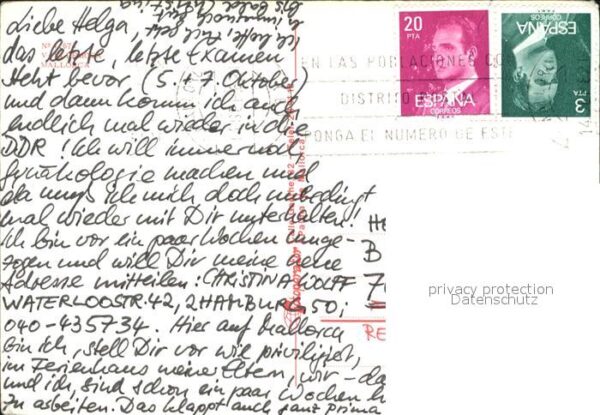 Liebe Helga,
das letzte, letzte Examen
steht bevor (5. + 7. Oktober)
und dann komm ich auch
endlich mal wieder in die
DDR! Ich will immer noch
Gynäkologie machen und
da muß ich mich doch unbedingt
mal wieder mit Dir unterhalten!
Ich bin vor ein paar Wochen umge-
zogen und will Dir meine neue
Adresse mitteilen: CHRISTINA WOLFF
WATERLOOSTR. 42, 2 HAMBURG 50;
040-435734. Hier auf Mallorca
bin ich, stell Dir vor wie privilegiert,
im Ferienhaus meiner Eltern, wir – da
und ich, sind schon ein paar Wochen h
zu arbeiten. Das klappt auch ganz prima
MALLORCA
20
PTA
ESPAÑA
CORREOS
ESPAÑA
CORREOS
3
PTA
EN LAS POBLACIONES CO
DISTRITO
PONGA EL NUMERO DE ESTE
He
B
7
RE
privacy protection
Datenschutz